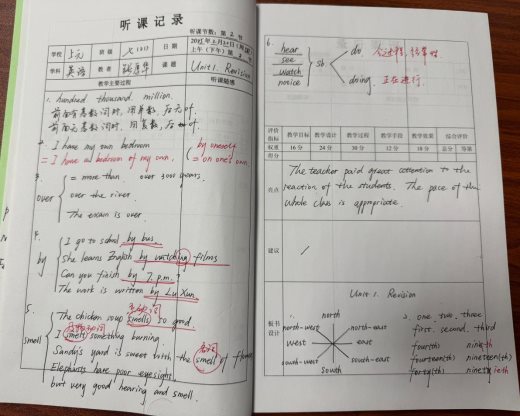 听课记录
听课节数：第 2 节
学校 上元 班级 七(11) 日期
上午(下午)第 节
学科 英语 教者 课题 Unit 1. Revision
教学主要过程 听课随感
1. hundred thousand million.
前面有基数词时，用单数，后无of.
前面无基数词时，用复数，后+of.
2. I have my own bedroom by oneself
= I have a bedroom of my own. = on one's own.
3. = more than over 300 years.
over over the river.
The exam is over.
4. I go to school by bus.
by She learns English by watching films
Can you finish by 7 p.m.?
The work is written by Lu Xun.
5. The chicken soup smells so good
smell I smell something burning.
名词
Sandy's yard is sweet with the smell of flowers
Elephants have poor eyesight,
but very good hearing and smell.
6. hear
see
watch
notice
sb
do 全过程，经常性.
doing. 正在进行.
评价指标 教学目标 教学设计 教学过程 教学手段 教学效果 综合评价
权重 16分 24分 30分 12分 18分 总分 等第
得分
亮点
The teacher paid great attention to the
reaction of the students. The pace of the
whole class is appropriate.
建议 /
板书设计
Unit 1. Revision
1. north
north-west north-east
west east
south-west south-east
south
2. one. two. three
first. second. third
four(th) ninth
fourteen(th) nineteen(th)
forty(th) ninetieth